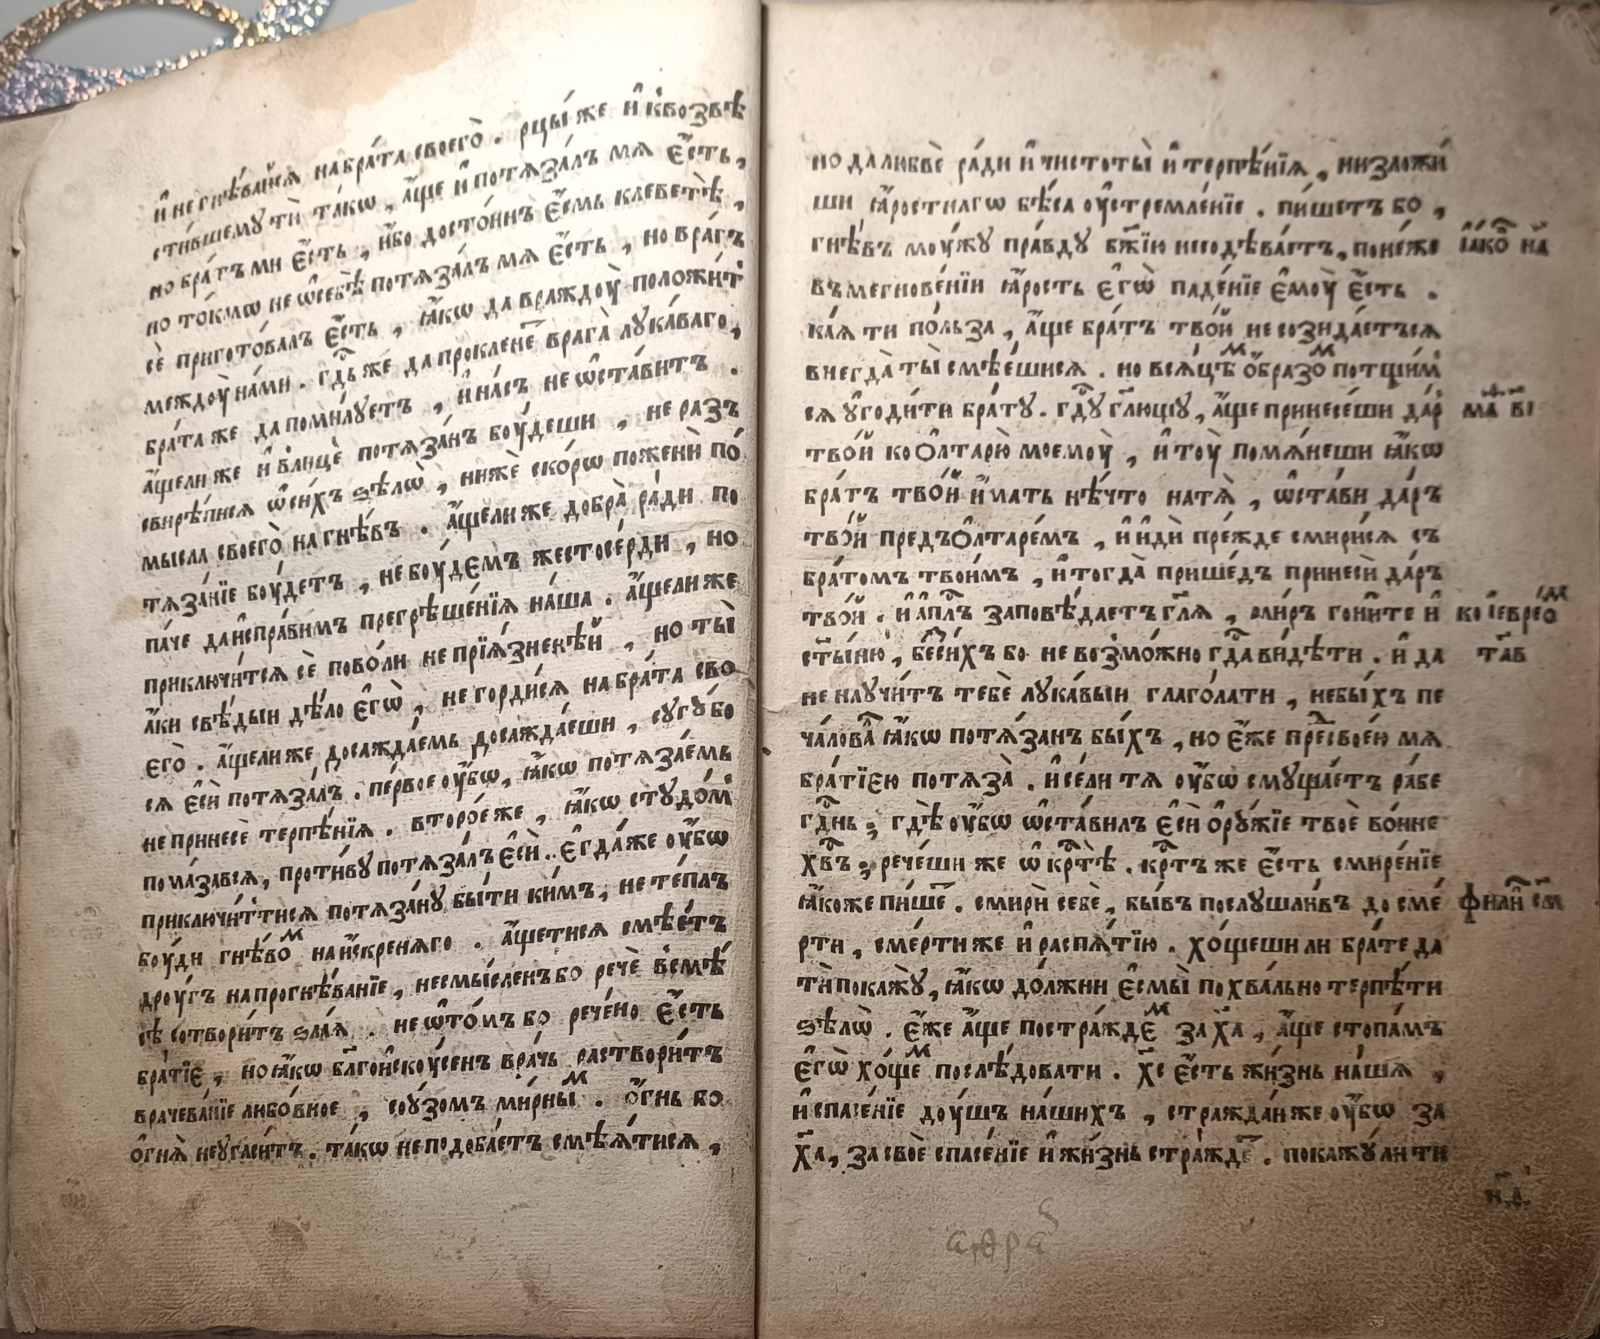 и҆ не гнѣ́вайсѧ на бра́та своего̀ . рцы́ же и҆ к̾возвѣ
сти́вшему тѝ та́кѡ , а҆́ще и҆ потѧза́лъ мѧ є҆́сть ,
но бра́тъ ми є҆́сть , и҆́бо досто́инъ є҆́смь клеветѣ̀ ,
но то́кмѡ не ѿ себѣ̀ потѧза́лъ мѧ є҆́сть , но вра́гъ
сѐ пригото́валъ є҆́сть , ꙗ҆́кѡ да враждоу̀ положи́т
междоу̀ на́ми . гд҇ь же да проклене҇ врага̀ лука́ваго ,
бра́та же да поми́луетъ , и҆ на́съ не ѡ҆ста́витъ .
а҆́щели же и҆ в̾лицѐ потѧза́нъ боу́деши , не раз̾
свирѣ́писѧ ѡ҆ си́хъ ѕѣлѡ̀ , нижѐ ско́рѡ поженѝ по́
мысла своего̀ на гнѣ́въ . а҆́щели же добра̀ ра́ди по
тѧза́нїе боу́детъ , не боу́дємъ жестосе́рди , но
па́че да и҆спра́вимъ прегрѣше́нїѧ на́ша . а҆́щели же
приключи́тсѧ сѐ пово́ли не прїѧ́знекѣй , но ты̀
а҆́ки свѣ́дыи дѣ́ло є҆гѡ̀ , не горди́сѧ на бра́та сво
єго̀ . а҆́щели же досажда́емь досажда́еши , сугу́бо
сѧ є҆сѝ потѧза́лъ . пе́рвое оу҆́бѡ , ꙗ҆́кѡ потѧза́емь
не принесѐ терпѣ́нїѧ . второ́е же , ꙗ҆́кѡ студо́м̾
пома́завсѧ , проти́ву потѧза́лъ є҆сѝ . . є҆гда́ же оу҆́бѡ
приключи́ттисѧ потѧза́ну бы́ти ки́мъ , не те́плъ
боу́ди гнѣ́воⷨ на и҆́скренѧго . а҆́щетисѧ смѣе́тъ
дроу́гъ на прогнѣ́ванїе , несмы́сленъ бо речѐ в̾смѣ́
сѣ сотвори́тъ ѕла́ѧ . не ѡ҆ то́мъ бо рече́но є҆́сть
бра́тїє , но ꙗ҆́кѡ бл҃гоиску́сенъ вра́чь раствори́тъ
врачева́нїе либо́вное , соу́зомъ ми́рныⷨ . о҆́гнь бо
о҆гнѧ̀ неугаси́тъ . та́кѡ не подоба́етъ смѣѧ́тисѧ ,
но да любвѐ ра́ди и҆ чистоты̀ и҆ терпѣ́нїѧ , низложи́
ши ꙗ҆́ростнагѡ бѣ́са оу҆стремле́нїе . пи́шетъ бо ,
гнѣ́въ моу́жу пра́вду бж҃їю несодѣва́етъ , поне́же
і҆а́ко҇в на҃
въ мегнове́нїи ꙗ҆́рость є҆гѡ̀ паде́нїе є҆моу̀ є҆́сть .
ка́ѧ ти по́льза , а҆́ще бра́тъ тво́й не созида́етъсѧ
внегда̀ ты̀ смѣе́шисѧ . но всѧ́цѣⷨ о҆́бразоⷨ потщи́м̾
сѧ у҆годи́ти бра́ту . гд҇у гл҃ющу , а҆́ще принесе́ши да́р̾
маⷴ҇ в҃і
тво́й ко о҆лтарю̀ моемоу̀ , и҆ тоу̀ помѧ́неши ꙗ҆́кѡ
бра́тъ тво́й и҆́мать нѣ́что на тѧ̀ , ѡ҆ста́ви да́ръ
тво́й предъ о҆лтаре́мъ , и҆ и҆дѝ пре́жде смири́сѧ съ
бра́томъ твои́мъ , и҆ тогда̀ прише́дъ принесѝ да́ръ
тво́й . и҆ а҆пл҇ъ заповѣ́даетъ гл҃ѧ , ѡ҆ миръ гони́те и҆
ко і҆еврео
ст҃ы́ню , беси́хъ бо не возмо́жно гд҇а ви́дѣти . и҆ да
не научи́тъ тебѐ лука́выи глаго́лати , не бы́хъ пе
ча́лова҇ ꙗ҆́кѡ потѧ́занъ бы́хъ , но є҆́же пре҇ свое́ю мѧ
бра́тїєю потѧза̀ . и҆ се́ли тѧ оу҆́бѡ смуща́етъ ра́бе
гд҇нь ; гдѣ̀ оу҆́бѡ ѡ҆ста́вилъ є҆сѝ о҆ру́жїе твоѐ во́ине
хв҇ъ ; рече́ши же ѡ҆ кр҇тѣ̀ . кр҇тъ же є҆́сть смире́нїе
ꙗ҆́коже пи́ше҇ . смирѝ себѐ , бы́въ послушли́въ до сме́
рти , сме́рти же и҆ распѧ́тїю . хо́щеши ли бра́те да
тѝ покажу̀ , ꙗ҆́кѡ до́лжни є҆смы̀ похва́льно терпѣ́ти
ѕѣлѡ̀ . є҆́же а҆́ще постра́ждєⷨ за х҃а , а҆́ще стопа́мъ
є҆гѡ̀ хо́щеⷨ послѣ́довати . хс҃ є҆́сть жи́знь на́ша ,
и҆ спасе́нїе доу́шъ на́шихъ , стражда́й же оу҆́бѡ за
х҃а , за своѐ спасе́нїе и҆ жи́знь стра́жде҇ . покажу́ ли ти
н҃д .